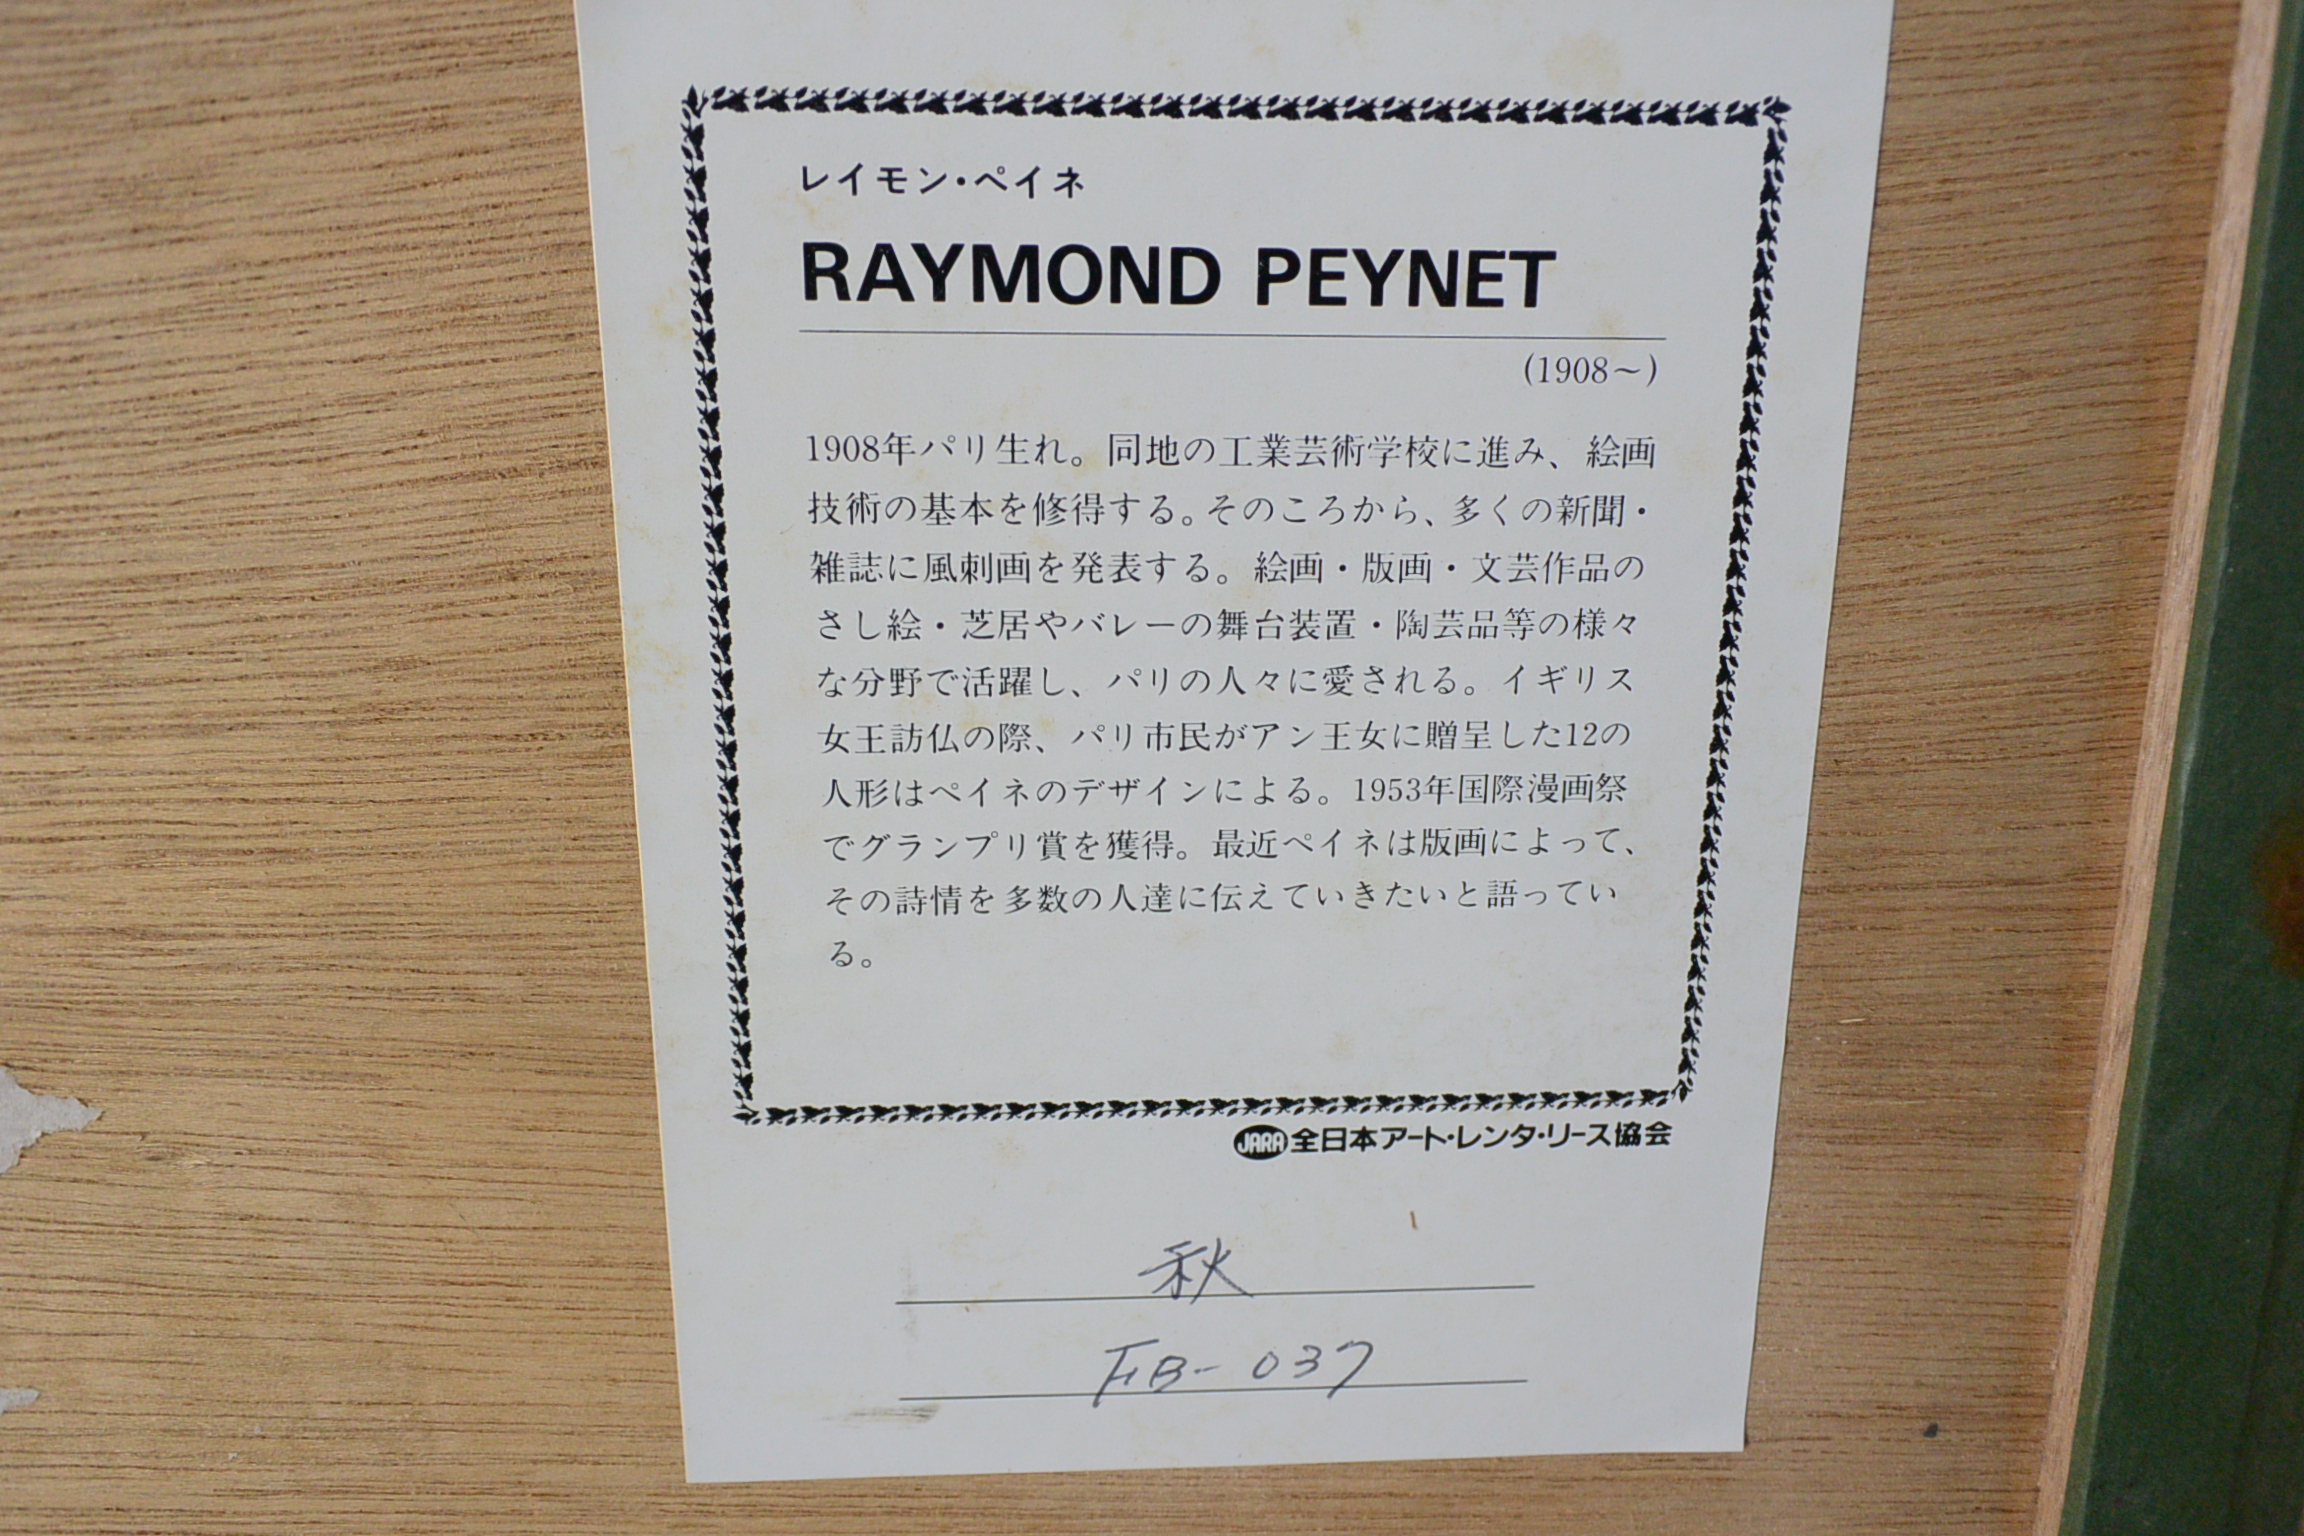 レイモン・ペイネ
RAYMOND PEYNET
(1908〜)
1908年パリ生れ。同地の工業芸術学校に進み、絵画
技術の基本を修得する。そのころから、多くの新聞・
雑誌に風刺画を発表する。絵画・版画・文芸作品の
さし絵・芝居やバレーの舞台装置・陶芸品等の様々
な分野で活躍し、パリの人々に愛される。イギリス
女王訪仏の際、パリ市民がアン王女に贈呈した12の
人形はペイネのデザインによる。1953年国際漫画祭
でグランプリ賞を獲得。最近ペイネは版画によって、
その詩情を多数の人達に伝えていきたいと語ってい
る。
JARA 全日本アート・レンタ・リース協会
秋
FB-037